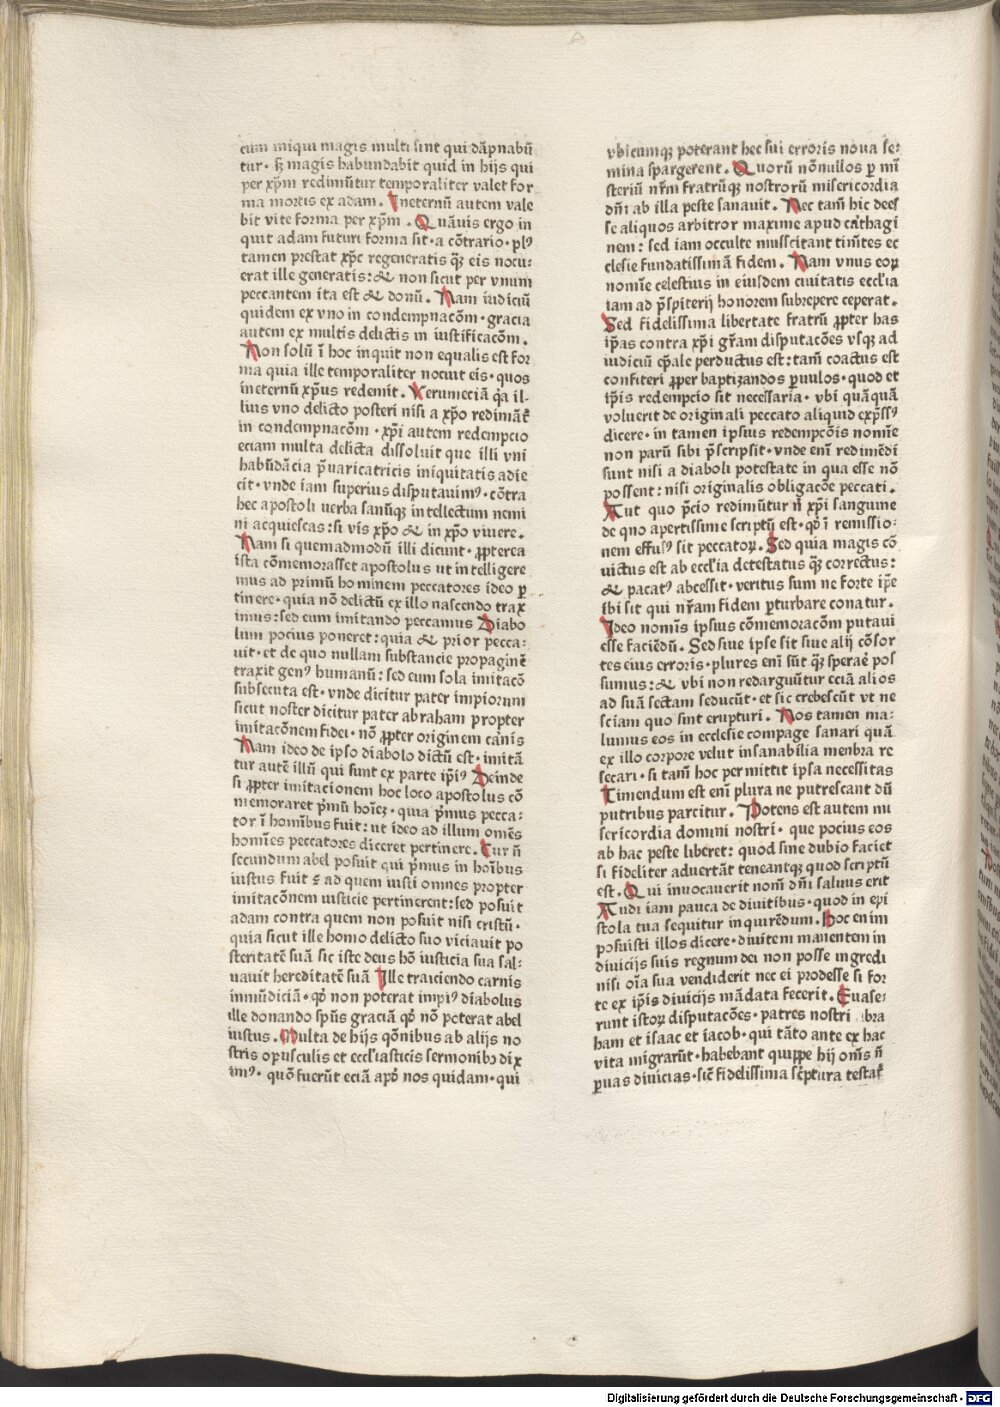 cum iniqui magis multi sint qui dãpnabũ
tur· sꝫ magis habundabit quid in hijs qui
per xp̃m redimũtur temporaliter valet for
ma mortis ex adam. Ineternũ autem vale
bit vite forma per xp̃m. Quãuis ergo in
quit adam futuri forma sit· a cõtrario· plꝰ
tamen prestat xp̃c regeneratis qꝫ eis nocu-
erat ille generatis: & non sicut per vnum
peccantem ita est & donũ. Nam iudiciũ
quidem ex vno in condempnacõm· gracia
autem ex multis delictis in iustificacõm.
Non solũ ĩ hoc inquit non equalis est for
ma quia ille temporaliter nocuit eis· quos
ineternũ xp̃us redemit. Verumeciã q̃a il-
lius vno delicto posteri nisi a xp̃o redimãt᷑
in condempnacõm· xp̃i autem redempcio
eciam multa delicta dissoluit que illi vni
habũdãcia p̃uaricatricis iniquitatis adie
cit· vnde iam superius disputauimꝰ· cõtra
hec apostoli uerba sanũqꝫ intellectum nemi
ni acquiescas: si vis xp̃o & in xp̃o viuere.
Nam si quemadmodũ illi dicunt· ꝓpterea
ista cõmemorasset apostolus ut intelligere
mus ad primũ hominem peccatores ideo ꝑ
tinere· quia nõ delictũ ex illo nascendo trax
imus: sed eum imitando peccamus Diabo
lum pocius poneret: quia & prior pecca-
uit· et de quo nullam substancie propaginẽ
traxit genꝰ humanũ: sed eum sola imitacõ
subsecuta est· vnde dicitur pater impiorum
sicut noster dicitur pater abraham propter
imitacõnem fidei· nõ ꝓpter originem carnis
Nam ideo de ipso diabolo dictũ est· imitã
tur autẽ illũ qui sunt ex parte ip̃iꝰ Deinde
si ꝓpter imitacionem hoc loco apostolus cõ
memoraret p̃mũ hoĩeꝫ· quia p̃mus pecca-
tor ĩ homĩbus fuit: ut ideo ad illum omẽs
homĩes peccatores diceret pertinere. Cur ñ
secundum abel posuit qui p̃mus in hoĩbus
iustus fuit ⁊ ad quem iusti omnes propter
imitacõnem iusticie pertinerent: sed posuit
adam contra quem non posuit nisi cristũ·
quia sicut ille homo delicto suo viciauit po
steritatẽ suã sic iste deus hõ iusticia sua sal-
uauit hereditatẽ suã Ille traiciendo carnis
inmũdiciã· qd̾ non poterat impiꝰ diabolus
ille donando sp̃us graciã qd̾ nõ poterat abel
iustus. Multa de hijs qõnibus ab alijs no
stris opusculis et eccl̃iasticis sermonibꝫ dix
imꝰ· quõ fuerũt eciã apd̾ nos quidam· qui
vbicumqꝫ poterant hec sui erroris noua se-
mina spargerent. Quorũ nõnullos ꝑ mĩ
steriũ nr̃m fratrũqꝫ nostrorũ misericordia
dñi ab illa peste sanauit. Nec tam̃ hic dees
se aliquos arbitror maxime apud carthagi
nem: sed iam occulte mussitant timẽtes ec
clesie fundatissimã fidem. Nam vnus eoꝝ
nomĩe celestius in eiusdem ciuitatis eccl̃ia
iam ad p̃spiterij honorem subrepere ceperat.
Sed fidelissima libertate fratrũ ꝓpter has
ip̃as contra xp̃i gr̃am disputacões vsqꝫ ad
iudiciũ ep̃ale perductus est: tam̃ coactus est
confiteri ꝓper baptizandos ꝑuulos· quod et
ip̃is redempcio sit necessaria· vbi quãquã
voluerit de originali peccato aliquid exp̃ssꝰ
dicere· in tamen ipsius redempcõis nomĩe
non parũ sibi p̃scripsit· vnde enĩ redimẽdi
sunt nisi a diaboli potestate in qua esse nõ
possent: nisi originalis obligacõe peccati.
Aut quo p̃cio redimũtur ñ xp̃i sanguine
de qno apertissime scriptũ est· qd̾ ĩ remissio-
nem effusꝰ sit peccatoꝝ. Sed quia magis cõ
uictus est ab eccl̃ia detestatus qꝫ correctus:
& pacatꝰ abcessit· veritus sum ne forte ip̃e
ibi sit qui nr̃am fidem ꝑturbare conatur.
Ideo nomĩs ipsius cõmemoracõm putaui
esse faciẽdũ. Sed siue ipse sit siue alij cõsor
tes eius erroris· plures enĩ sũt qꝫ sperare pos
sumus: & vbi non redarguũtur eciã alios
ad suã sectam seducũt· et sic crebescũt vt ne
sciam quo sint erupturi. Nos tamen ma-
lumus eos in ecclesie compage sanari quã
ex illo corpore velut insanabilia menbra re
secari· si tam̃ hoc permittit ipsa necessitas
Timendum est enĩ plura ne putrescant dũ
putribus parcitur. Potens est autem mi
sericordia domini nostri· que pocius eos
ab hac peste liberet: quod sine dubio faciet
si fideliter aduertãt teneantqꝫ quod scriptũ
est. Qui inuocauerit nom̃ dñi saluus erit
Audi iam pauca de diuitibus· quod in epi
stola tua sequitur inquirẽdum. Hoc enim
posuisti illos dicere· diuitem manentem in
diuicijs suis regnum dei non posse ingredi
nisi oĩa sua vendiderit nec ei prodesse si for
te ex ip̃is diuicijs mãdata fecerit. Euase-
runt istoꝝ disputacões· patres nostri abra
ham et isaac et iacob· qui tãto ante ex hac
vita migrarũt· habebant quippe hij om̃s ñ
ꝑuas diuicias· sic̃ fidelissima sc̃ptura testat᷑
Digitalisierung gefördert durch die Deutsche Forschungsgemeinschaft - DFG